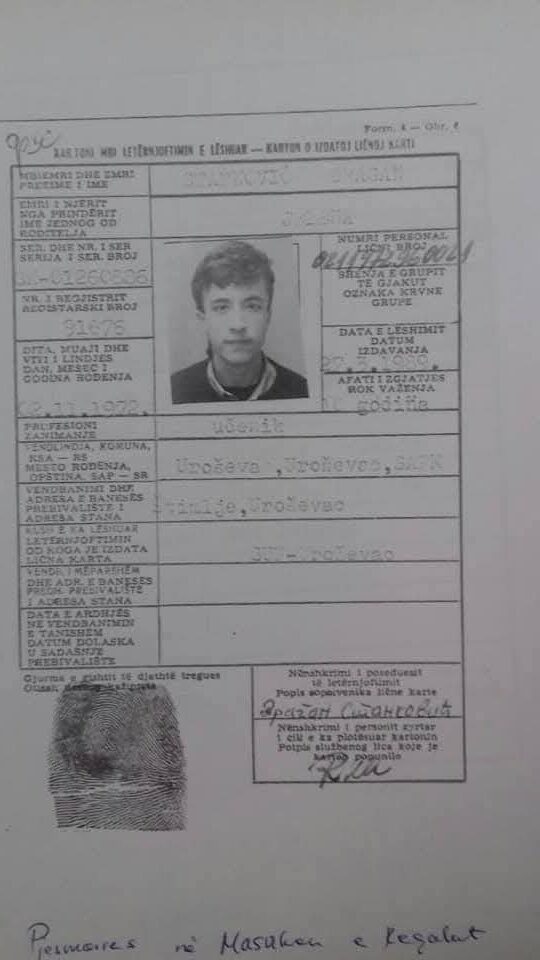 Form. 4 — Obr. 4
KARTONI MBI LETËRNJOFTIMIN E LËSHUAR — KARTON O IZDATOJ LIČNOJ KARTI
MBIEMRI DHE EMRI
PREZIME I IME
STANKOVIĆ DRAGAN
EMRI I NJËRIT
NGA PRINDËRIT
IME JEDNOG OD
RODITELJA
SER. DHE NR. I SER
SERIJA I SER. BROJ
NR. I REGJISTRIT
REGISTARSKI BROJ
91676
DITA, MUAJI DHE
VITI I LINDJES
DAN, MESEC I
GODINA ROĐENJA
02.11.1972.
NUMRI PERSONAL
LIČNI BROJ
SHENJA E GRUPIT
TË GJAKUT
OZNAKA KRVNE
GRUPE
DATA E LËSHIMIT
DATUM
IZDAVANJA
AFATI I ZGJATJES
ROK VAŽENJA
godina
PROFESIONI
ZANIMANJE
učenik
VENDLINDJA, KOMUNA,
KSA — RS
MESTO ROĐENJA,
OPŠTINA, SAP — SR
Uroševac,Uroševac,SAPK
VENDBANIMI DHE
ADRESA E BANESËS
PREBIVALIŠTE I
ADRESA STANA
Štimlje,Uroševac
KUSH E KA LËSHUAR
LETËRNJOFTIMIN
OD KOGA JE IZDATA
LIČNA KARTA
SUP-Uroševac
VENDI I MËPARSHËM
DHE ADR. E BANESËS
PREĐH. PREBIVALIŠTE
I ADRESA STANA
DATA E ARDHJES
NË VENDBANIMIN
E TANISHËM
DATUM DOLASKA
U SADAŠNJE
PREBIVALIŠTE
Gjurma e gishtit të djathtë tregues
Nënshkrimi i poseduesit
të letërnjoftimit
Popis sopstvenika lične karte
Драган Станковић
Nënshkrimi i personit zyrtar
i cili e ka plotësuar kartonin
Potpis službenog lica koje je
karton popunilo
Pjesmarres në Masakën e Reçakut